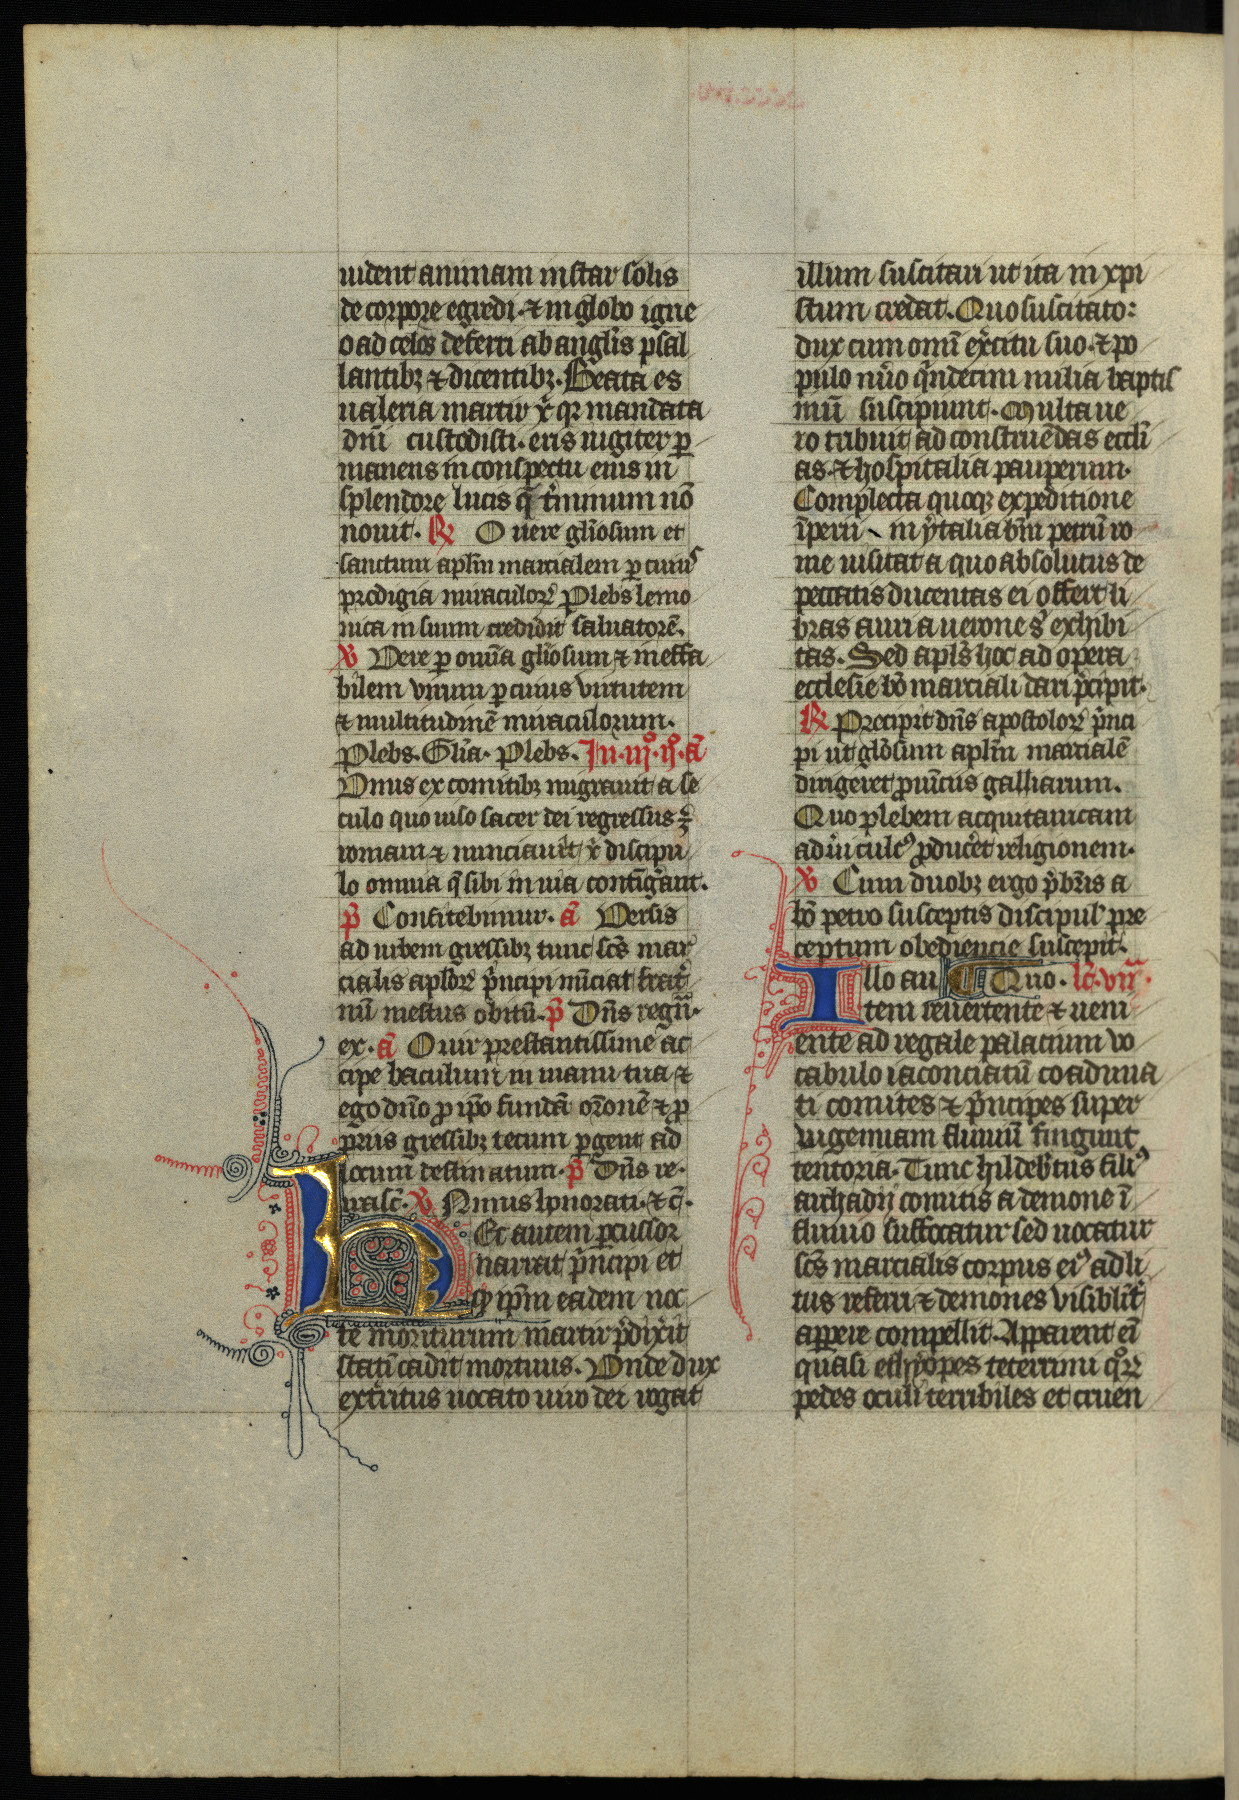 uident animam instar solis
de corpore egredi· ⁊ in globo igne
o ad celos deferri ab angl̃is psal
lantibꝫ ⁊ dicentibꝫ. Beata es
ualeria martir x̃ qꝛ mandata
dñi custodisti· eris iugiter ꝑ
manens in conspectu eius in
splendore lucis q̃ t̃minum nõ
nouit. R̷ O uere gl̃iosum et
sanctum apl̃m marcialem ꝑ cuiuꝰ
prodigia miraculoꝝ Plebs lemo
uica in suum credidit saluatorẽ.
V̷ Uere ꝑ omĩa gl̃iosum ⁊ ineffa
bilem uirum ꝑ cuius uirtutem
⁊ multitudinẽ miraculorum.
Plebs. Gl̃ia. Plebs. In·iijº·nº·ã
Unus ex comitibꝫ migrauit a se
culo quo uiso sacer dei regressus ẽ
romam ⁊ nunciauit x̃ discipu
lo omnia q̃ sibi in uia contig̃ant.
p̃ Confitebimur. ã Uersis
ad urbem gressibꝫ tunc sc̃s mar
cialis aplõꝝ p̃ncipi nũciat frat̃
nũ mestus obitũ. p̃ Dñs regñ.
ex. ã O uir prestantissime ac
cipe baculum in manu tua ⁊
ego dño ꝓ ip̃o fundã or̃onẽ ⁊ ꝓ
priis gressibꝫ tecum ꝑgent ad
locum destinatum. p̃ Dñs re.
uasc̃. V̷ Nimis honorati. ⁊ c̃.
Hec autem ꝑcussor
narrat p̃ncipi et
qꝫ ip̃m eadem noc
te moriturum martir p̃dix̃it
statĩ cadit mortuus. Unde dux
ext̃ritus uocato uiro dei rogat
illum suscitari ut ita in xpi
stum credat. Quo suscitato:
dux cum omĩ ex̃citu suo· ⁊ po
pulo nũo q̃ndecim milia baptis
mũ suscipiunt. Multa ue
ro tribuit ad construẽdas eccl̃i
as· ⁊ hospitalia pauperum.
Completa quoqꝫ expeditione
ĩperii in ytalia b̃m petrũ ro
me uisitat a quo absolutus de
peccatis ducentas ei offert li
bras auri a nerone s̃ exhibi
tas. Sed apl̃s hoc ad opera
ecclesie bõ marciali dari p̃cipit.
R̷ Precipit dñs apostoloꝝ p̃nci
pi ut gl̃osum apl̃m marcialẽ
dirigeret ꝓuĩciis galliarum.
Quo plebem acquitanicam
ad ũi culẽꝰ ꝓduc̃et religionem.
V̷ Cum duobꝫ ergo p̃bris a
bõ petro susceptis discipul̃ pre
ceptum obediencie suscepit.
Illo au Quo. lc̃. viij̃.
tem reuertente ⁊ ueni
ente ad regale palacium uo
cabulo iaconciatũ coaduna
ti comites ⁊ p̃ncipes super
uigennam fluuiũ fingunt
tentoria. Tunc hildeb̃tus filiꝰ
archadii comitis a demone ĩ
fluuio suffocatur sed uocatur
sc̃s marcialis corpus eiꝰ ad li
tus referri ⁊ demones uisiblit̃
apꝑere compellit. Apparent eĩ
quasi ethyopes teterrimi qᵒꝝ
pedes oculi terribiles et cruen